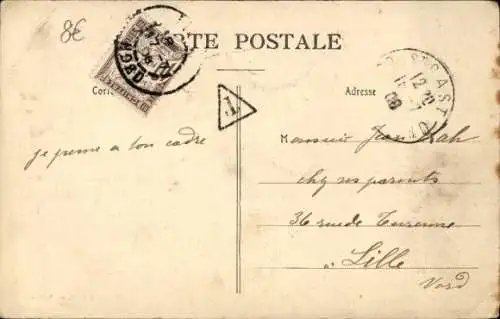 8€
CARTE POSTALE
Corre
Adresse
T
je pense a ton cadre
Monsieur Jean
chez ses parents
36 rue de Turenne
a Lille
Nord